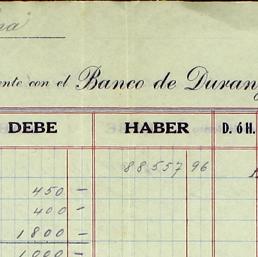 ente con el Banco de Duran
DEBE HABER D. ó H.
88557 96
450 -
400 -
1800 -
1000 -